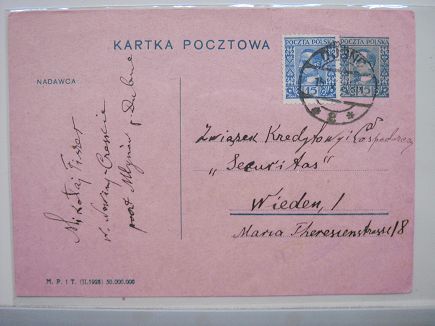 KARTKA POCZTOWA
POCZTA POLSKA
15 15
POCZTA POLSKA
15
DUBNO
NADAWCA
Mikołaj Fiszer
pocz Młynów Dubno
Związek Kredytowy i Gospodarczy
"Securitas"
Wieden, 1
Maria Theresienstrasse 18
M. P. i T. (II.1928) 50.000.000